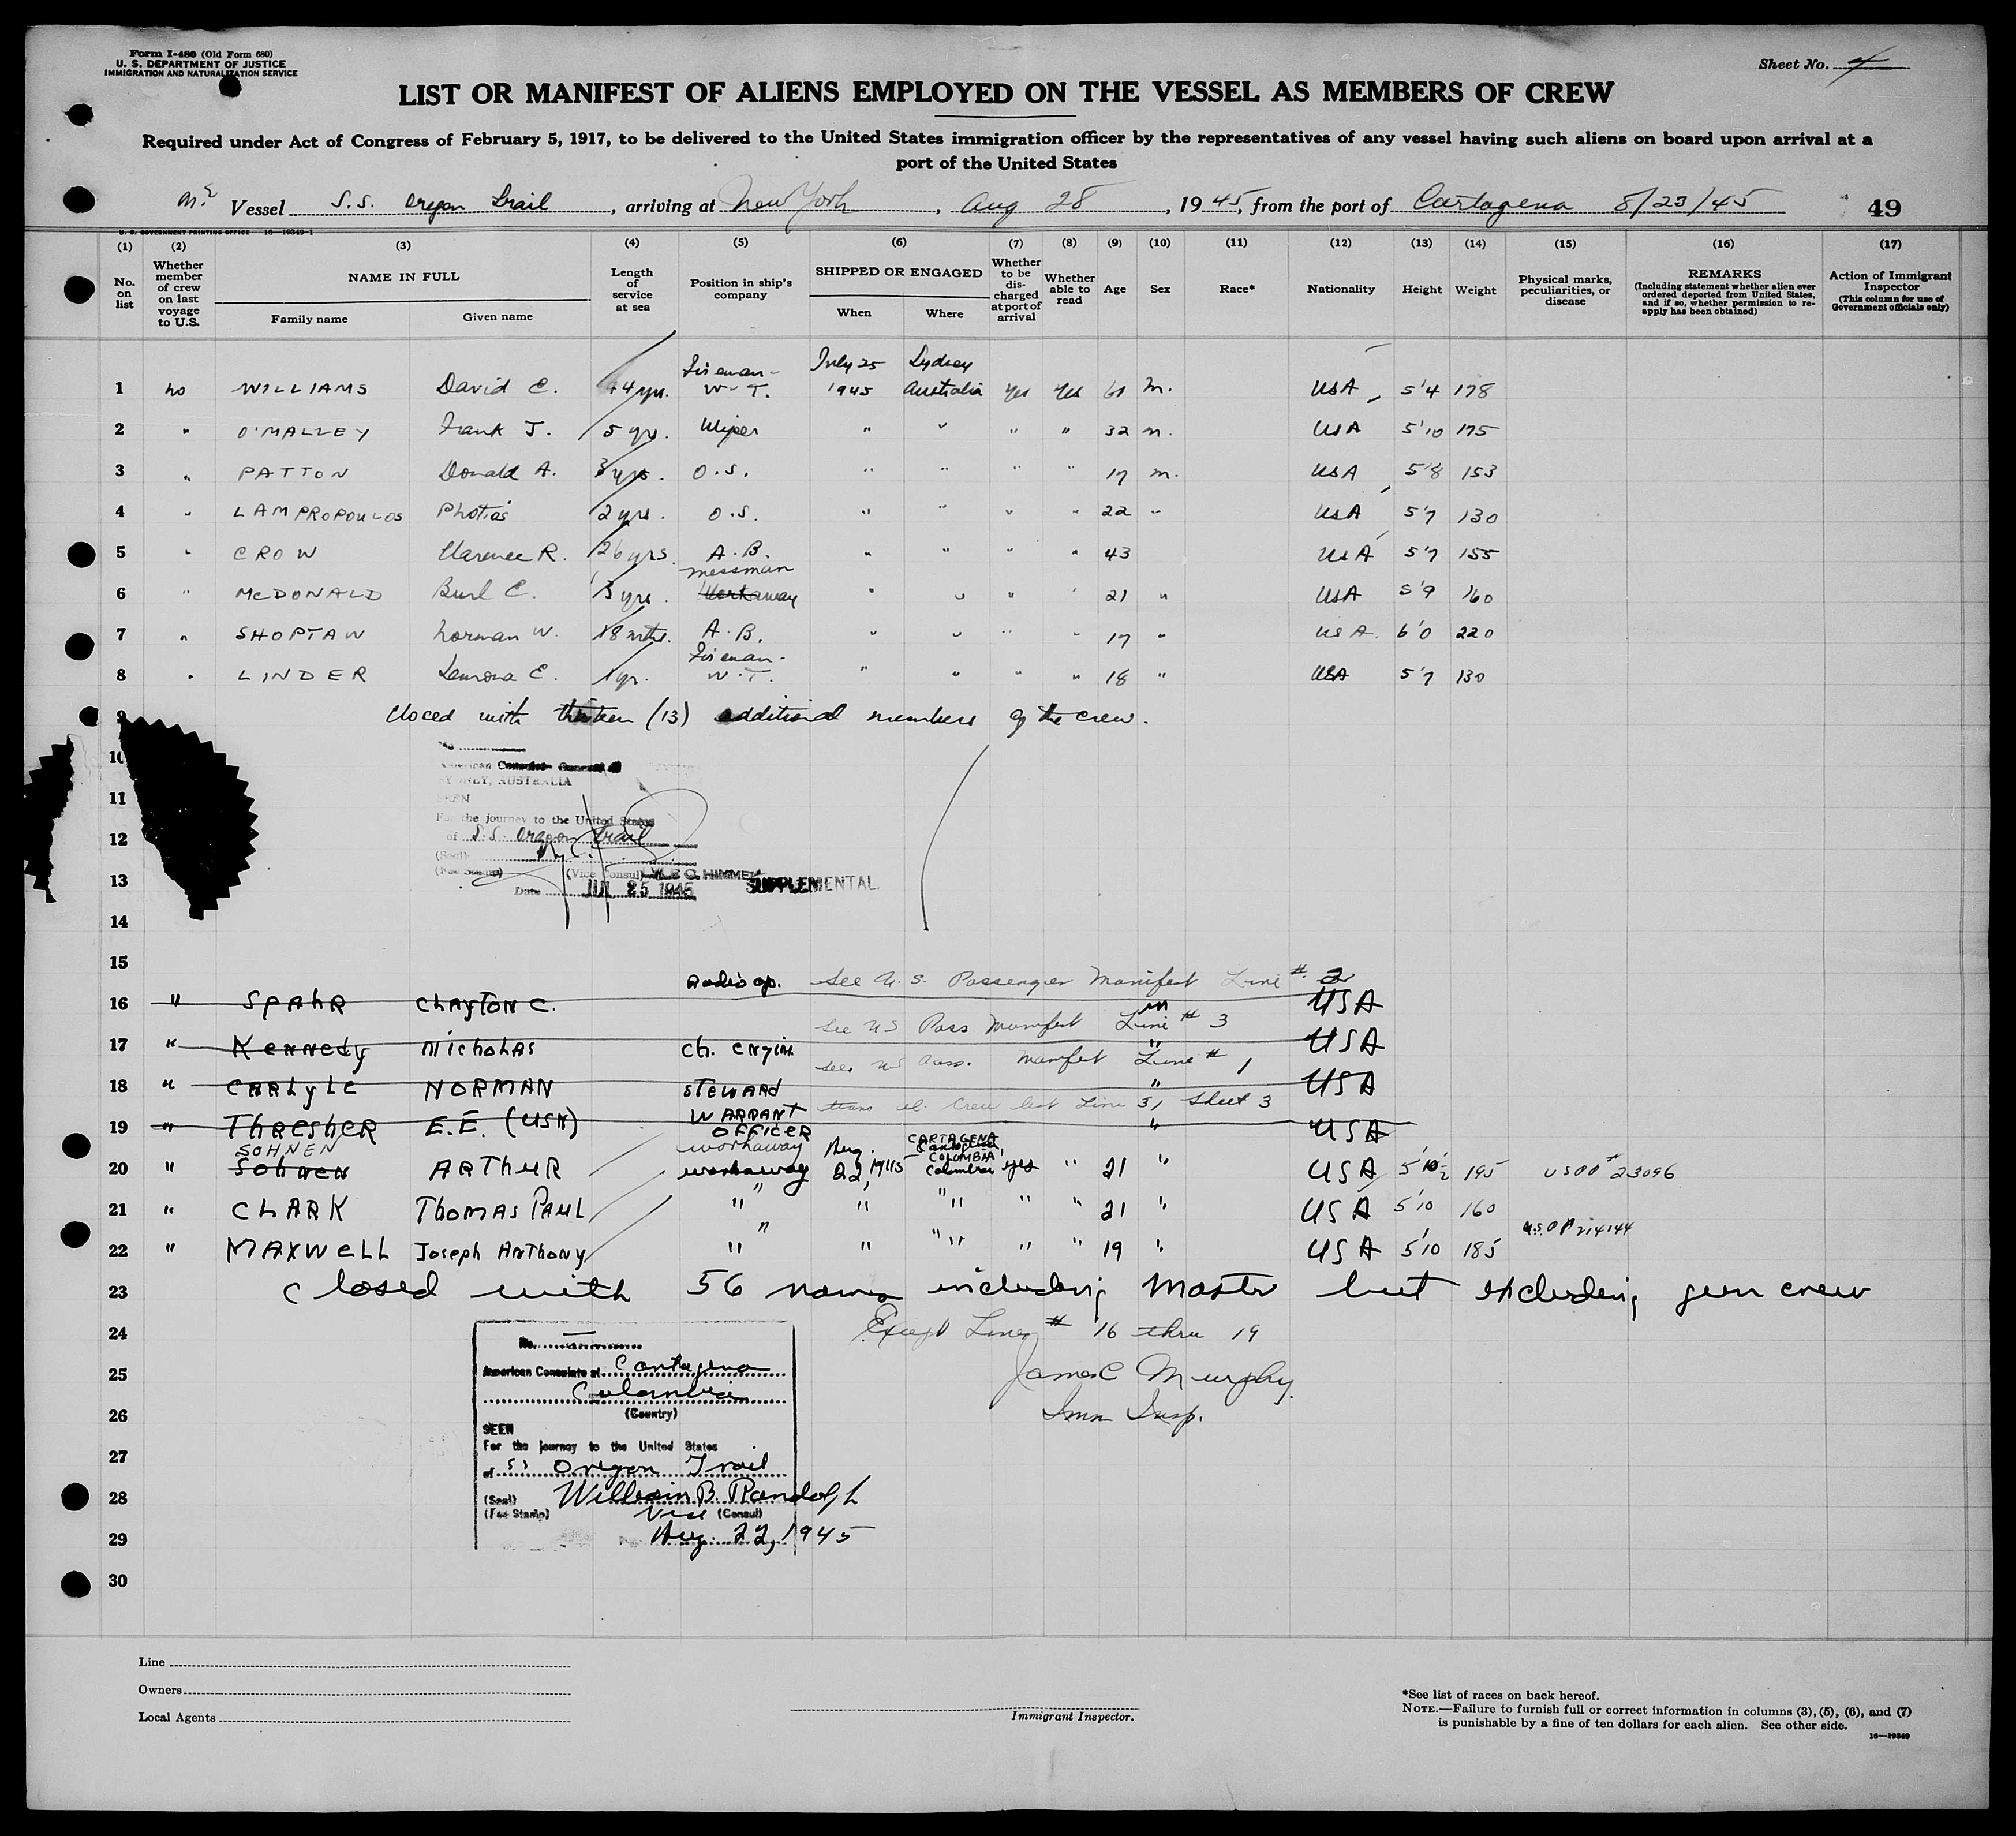 Form I-480 (Old Form 680)
U. S. DEPARTMENT OF JUSTICE
IMMIGRATION AND NATURALIZATION SERVICE
Sheet No. 4
LIST OR MANIFEST OF ALIENS EMPLOYED ON THE VESSEL AS MEMBERS OF CREW
Required under Act of Congress of February 5, 1917, to be delivered to the United States immigration officer by the representatives of any vessel having such aliens on board upon arrival at a
port of the United States
Vessel S.S. Oregon Trail, arriving at New York, Aug 28, 1945, from the port of Cartagena 8/23/45 49
U. S. GOVERNMENT PRINTING OFFICE 16-19349-1
(1) (2) (3) (4) (5) (6) (7) (8) (9) (10) (11) (12) (13) (14) (15) (16) (17)
No. on list
Whether member of crew on last voyage to U.S.
NAME IN FULL
Family name Given name
Length of service at sea
Position in ship's company
SHIPPED OR ENGAGED
When Where
Whether to be discharged at port of arrival
Whether able to read
Age
Sex
Race*
Nationality
Height
Weight
Physical marks, peculiarities, or disease
REMARKS
(Including statement whether alien ever ordered deported from United States, and if so, whether permission to reapply has been obtained)
Action of Immigrant Inspector
(This column for use of Government officials only)
1 no WILLIAMS David E. 44 yrs. Fireman-W-T. July 25 1945 Sydney Australia yes yes 61 m. USA 5'4 178
2 " O'MALLEY Frank J. 5 yrs. Wiper " " " " 32 m. USA 5'10 175
3 " PATTON Donald A. 3 yrs. O.S. " " " " 17 m. USA 5'8 153
4 " LAMPROPOULOS Photios 2 yrs. O.S. " " " " 22 " USA 5'7 130
5 " CROW Clarence R. 26 yrs. A.B. " " " " 43 USA 5'7 155
6 " McDONALD Burl E. 3 yrs. messman Workaway " " " " 21 " USA 5'9 160
7 " SHOPTAW Norman W. 18 mths. A.B. " " " " 17 " USA 6'0 220
8 " LINDER E. 1 yr. Fireman-W.T. " " " " 18 " USA 5'7 130
9 Closed with thirteen (13) additional members of the crew.
10
American Consulate General
SYDNEY, AUSTRALIA
11 SEEN
For the journey to the United States
12 of S.S. Oregon Trail
(Seal)
13 (Fee Stamp) (Vice Consul) LYLE C. HIMMEL
Date JUL 25 1945 SUPPLEMENTAL
14
15
16 " SPAHR CLAYTON C. Radio op. See U.S. Passenger Manifest Line # 2 m USA
17 " Kennedy Nicholas Ch. Engin. See US Pass Manifest Line # 3 " USA
18 " CARLYLE NORMAN STEWARD See US Pass. Manifest Line # 1 " USA
19 " THRESHER E.E. (USN) WARRANT OFFICER Crew list Line 31 Sheet 3 " USA
20 " SOHNEN Sohnen ARTHUR workaway workaway Aug. 22, 1945 CARTAGENA COLUMBIA, Colombia yes " 21 " USA 5'10½ 195 # 23096
21 " CLARK THOMAS PAUL " " " " " 21 " USA 5'10 160
22 " MAXWELL Joseph ANTHONY " " " " " 19 " USA 5'10 185 214144
23 Closed with 56 names including Master but excluding gun crew
24 Except Lines # 16 thru 19
James C Murphy
Imm Insp.
No.
25 American Consulate at Cartagena
Colombia
26 (Country)
SEEN
27 For the journey to the United States
of SS Oregon Trail
28 (Seal) William B. Randolph
(Fee Stamp) Vice (Consul)
29 Aug. 22, 1945
30
Line
Owners
Local Agents
Immigrant Inspector.
*See list of races on back hereof.
NOTE.—Failure to furnish full or correct information in columns (3), (5), (6), and (7)
is punishable by a fine of ten dollars for each alien. See other side.
16—19349